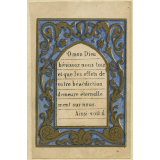 O mon Dieu
bénissez nous tous
et que les effets de
votre bénédiction
demeure éternelle
ment sur nous.
Ainsi-soit-il.